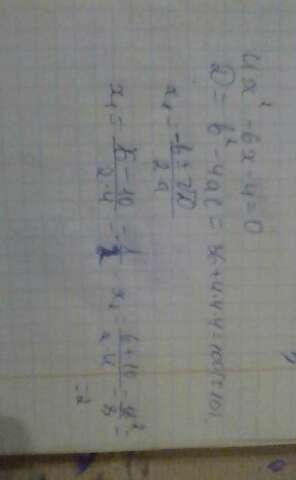 4x² - 6x - 4 = 0
D = b² - 4ac = 36 + 4·4·4 = 100
x₁ = (-b ± √D) / 2a
x₁ = (6 - 10) / (2·4) = x₂ = (6 + 10) / (2·4) = = 2